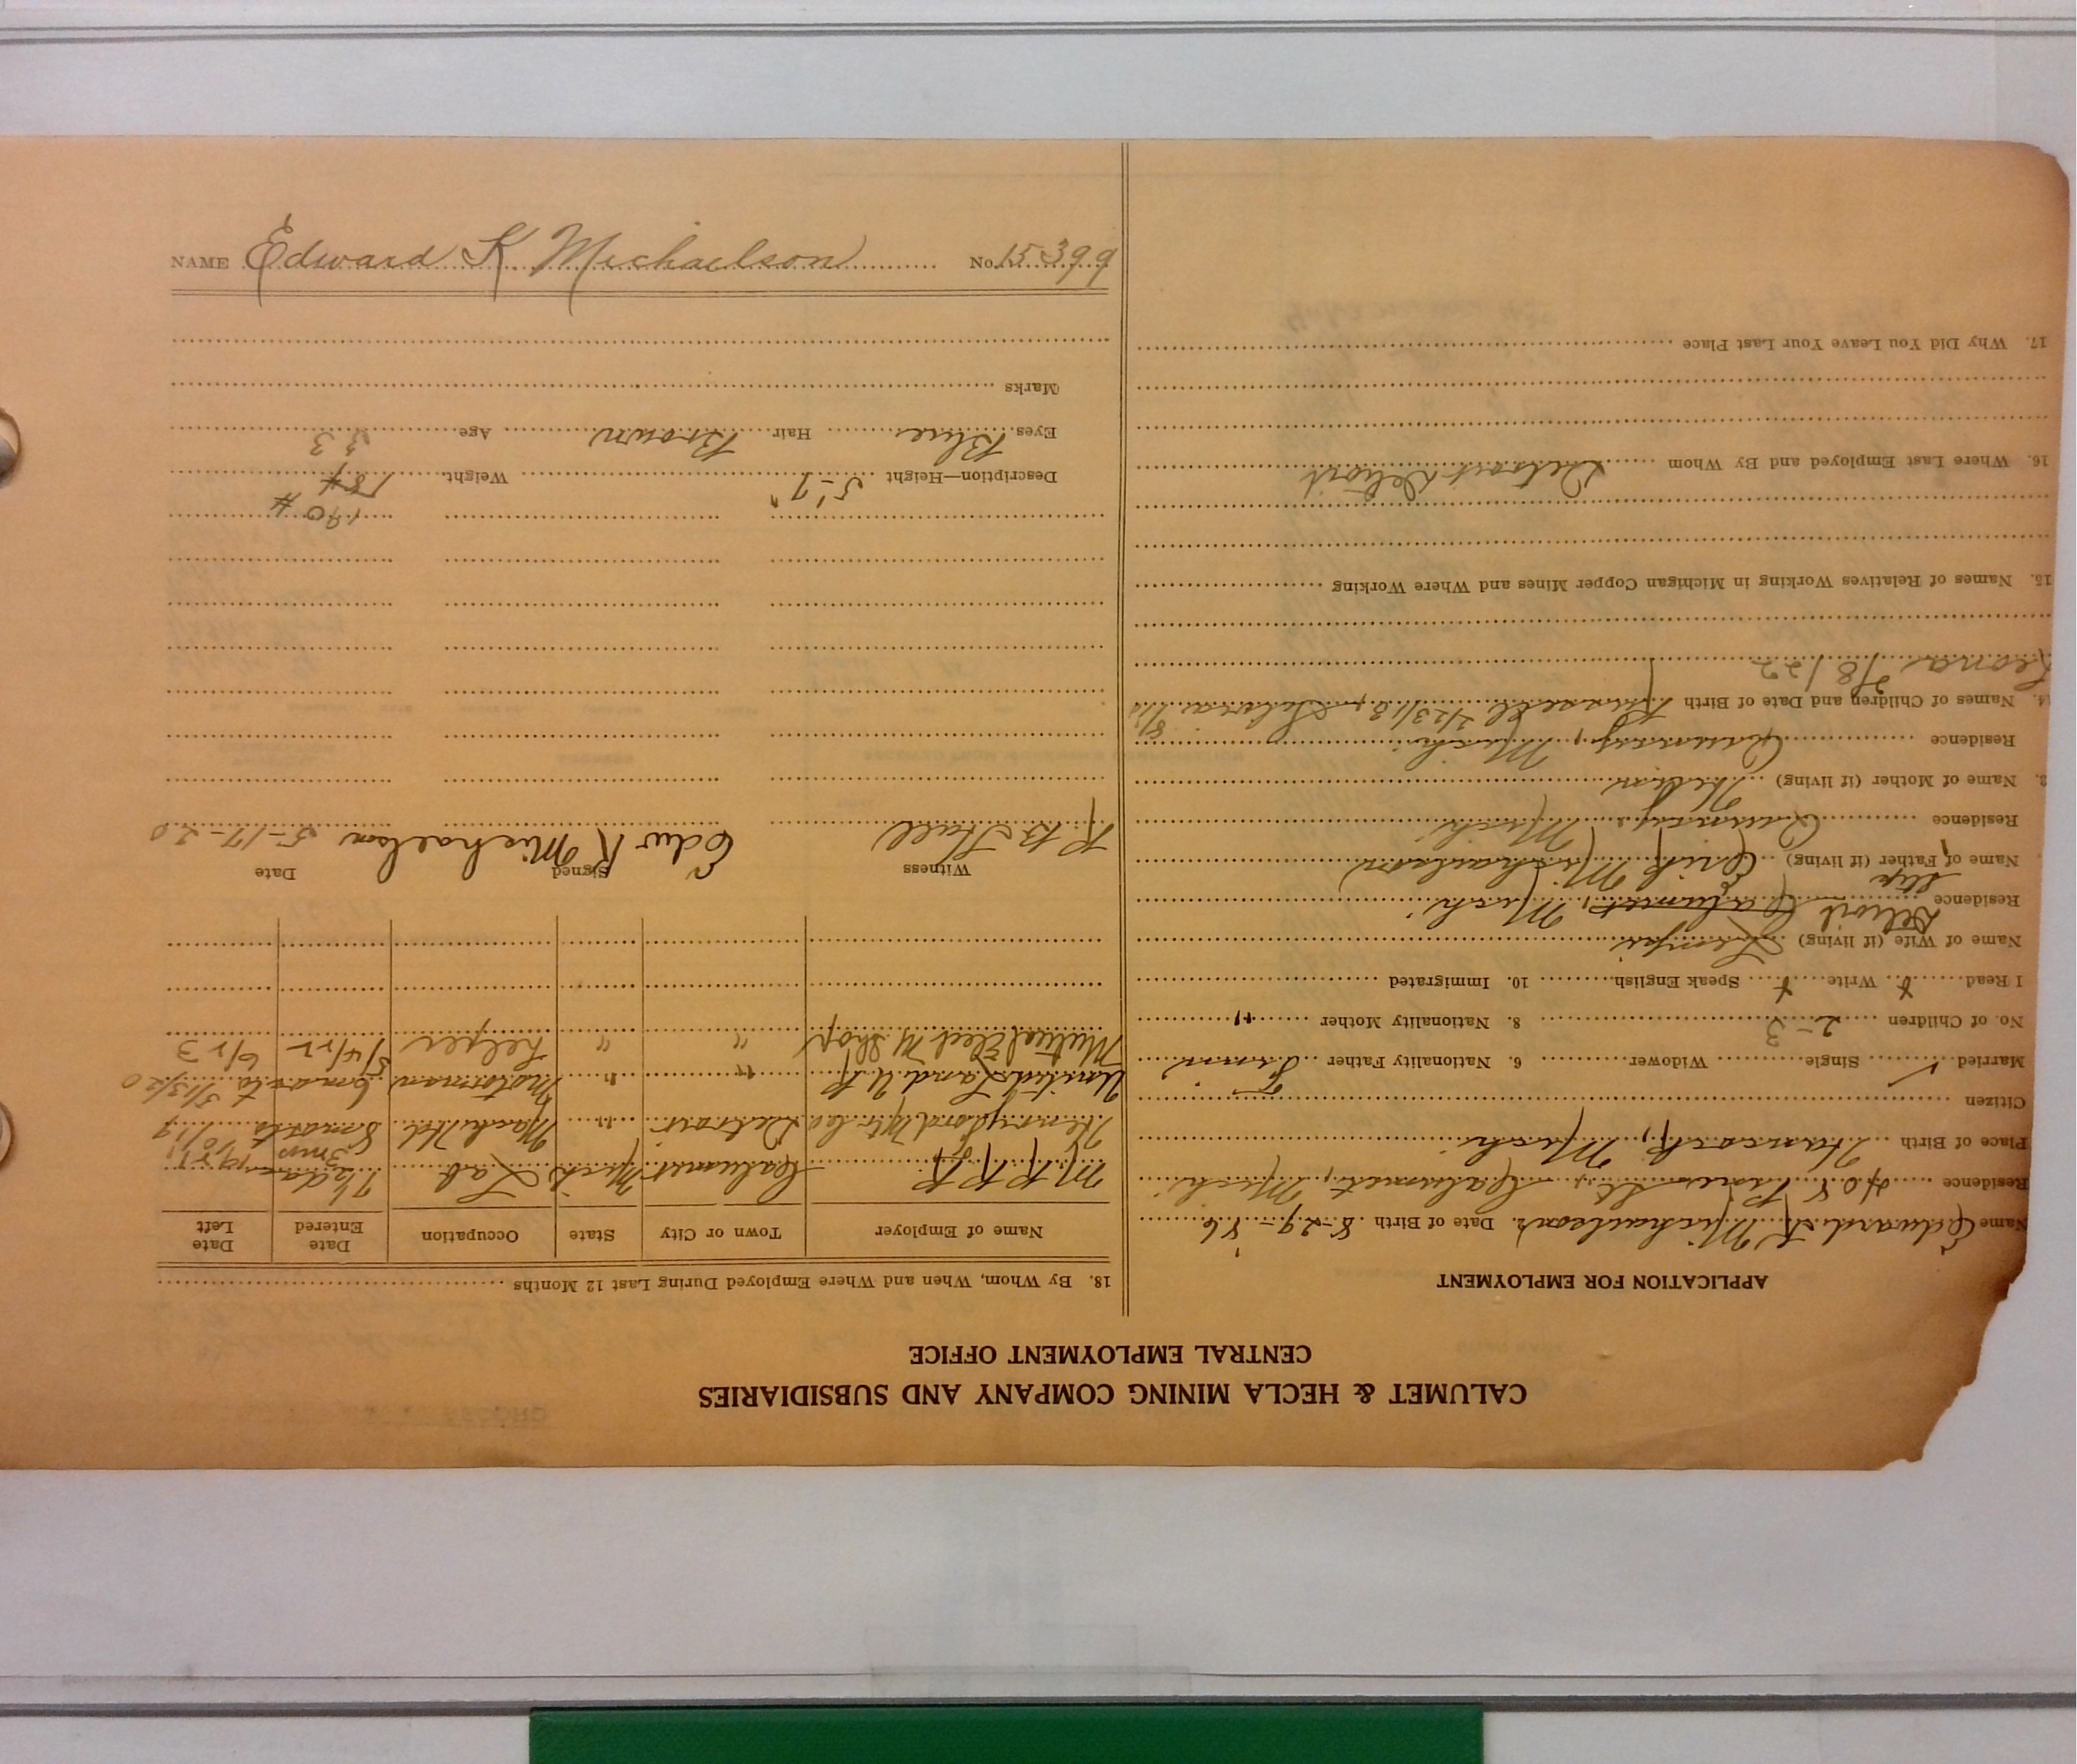 CALUMET & HECLA MINING COMPANY AND SUBSIDIARIES
CENTRAL EMPLOYMENT OFFICE
APPLICATION FOR EMPLOYMENT
Name Edward K Michaelson 2. Date of Birth 8-29-'86
Residence 408 Pine St., Calumet, Mich
Place of Birth Hancock, Mich
Citizen
Married ✓ Single Widower 6. Nationality Father Finn
No. of Children 2-3 8. Nationality Mother "
I Read Write Speak English 10. Immigrated
Name of Wife (if living)
Detroit
Residence Calumet, Mich
Step
Name of Father (if living) Erik Michaelson
Residence Quincy, Mich
3. Name of Mother (if living)
Residence Quincy, Mich
14. Names of Children and Date of Birth Russell 2/23/18,
Leona /8/22
15. Names of Relatives Working in Michigan Copper Mines and Where Working
16. Where Last Employed and By Whom Detroit Detroit
17. Why Did You Leave Your Last Place
18. By Whom, When and Where Employed During Last 12 Months
Name of Employer Town or City State Occupation Date Entered Date Left
M R R R Calumet Mich Lab 1½ da
3 mo
Henry Ford Mtr. Co Detroit " Mach Hd 8 mos to
United Land U.R " " Motorman 6 mos to 5/13/20
Mutual Elect M. Shop " " helper 5/4/22 6/23
Witness Signed Date
R B Hall Edw K Michaelson 5-17-20
190 #
Description—Height 5'-7" Weight 184
Eyes Blue Hair Brown Age 33
Marks
NAME Edward K Michaelson No. 15399